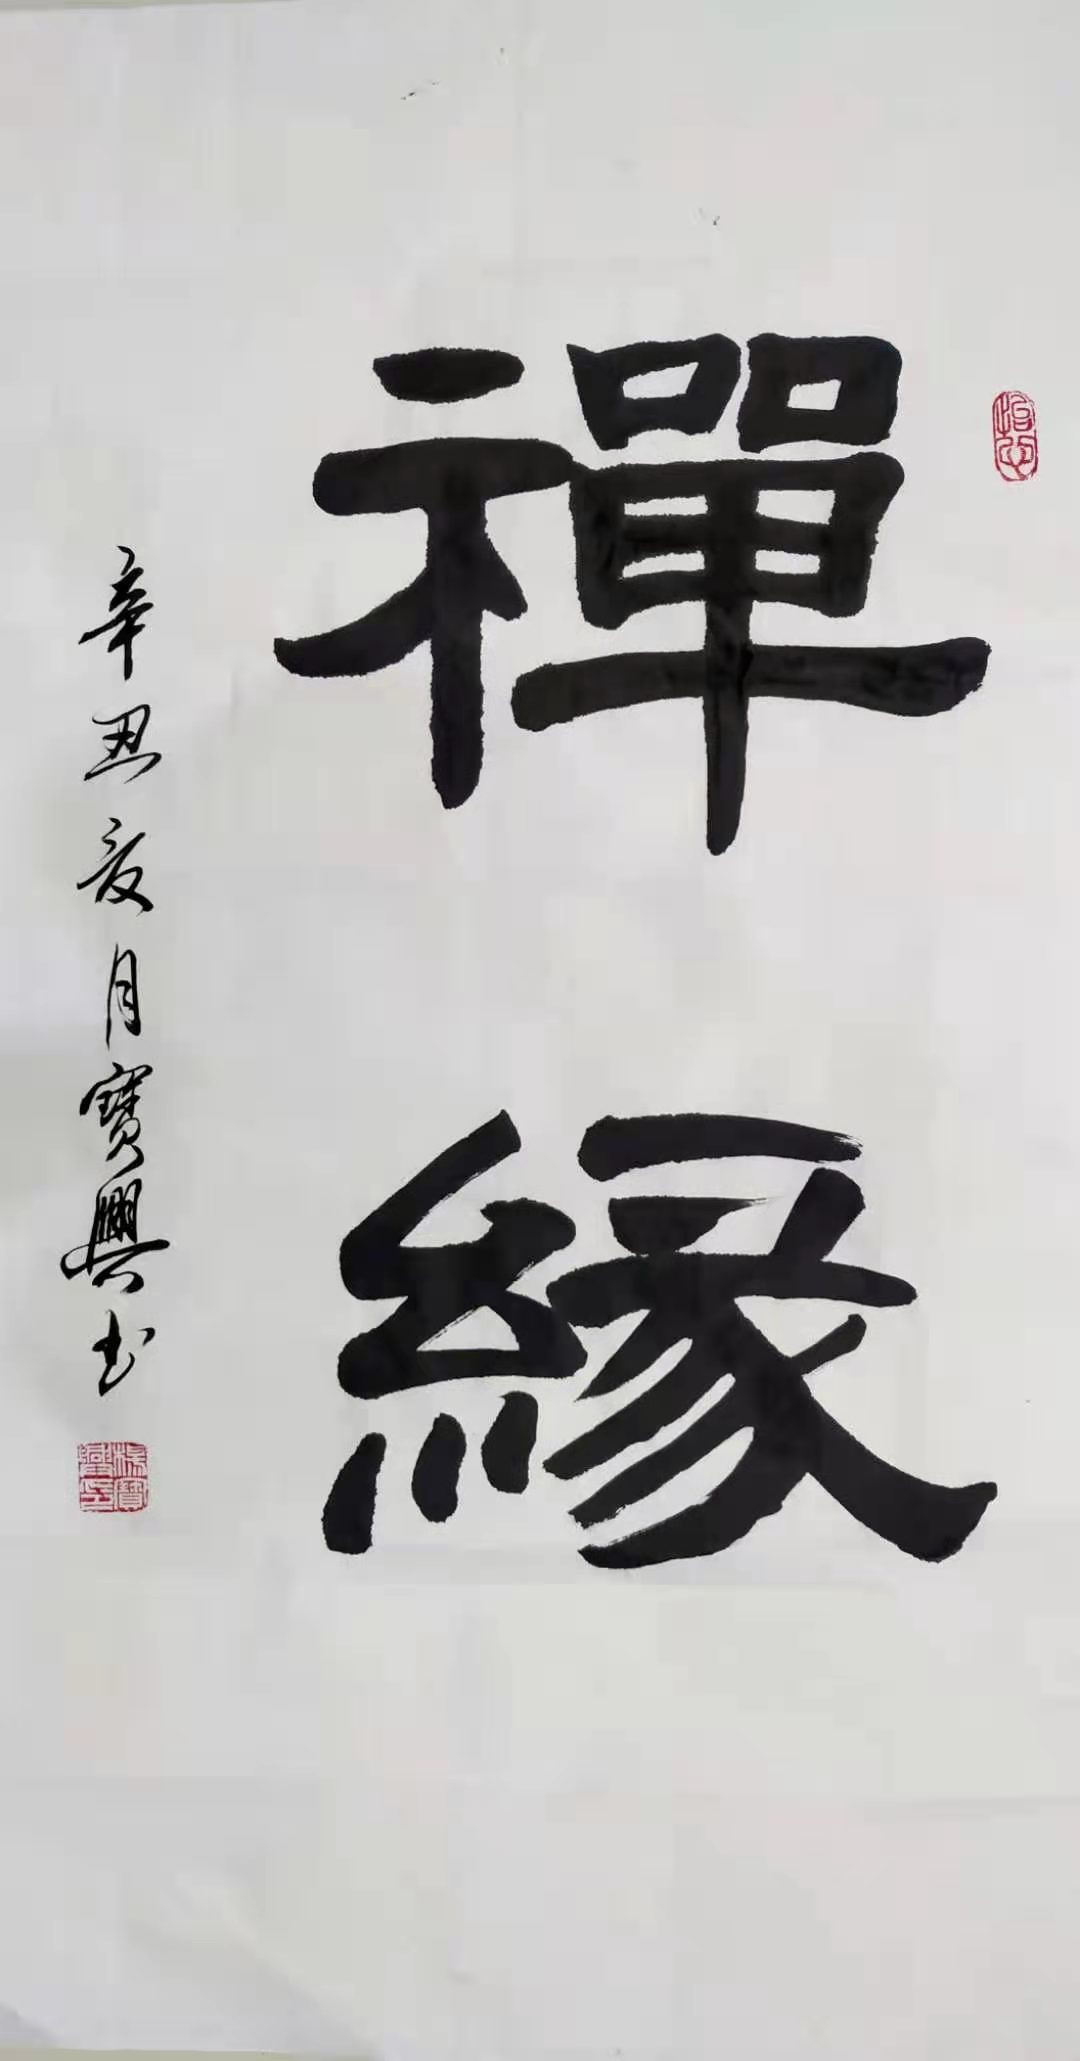 禪緣
辛丑夏月寶興书